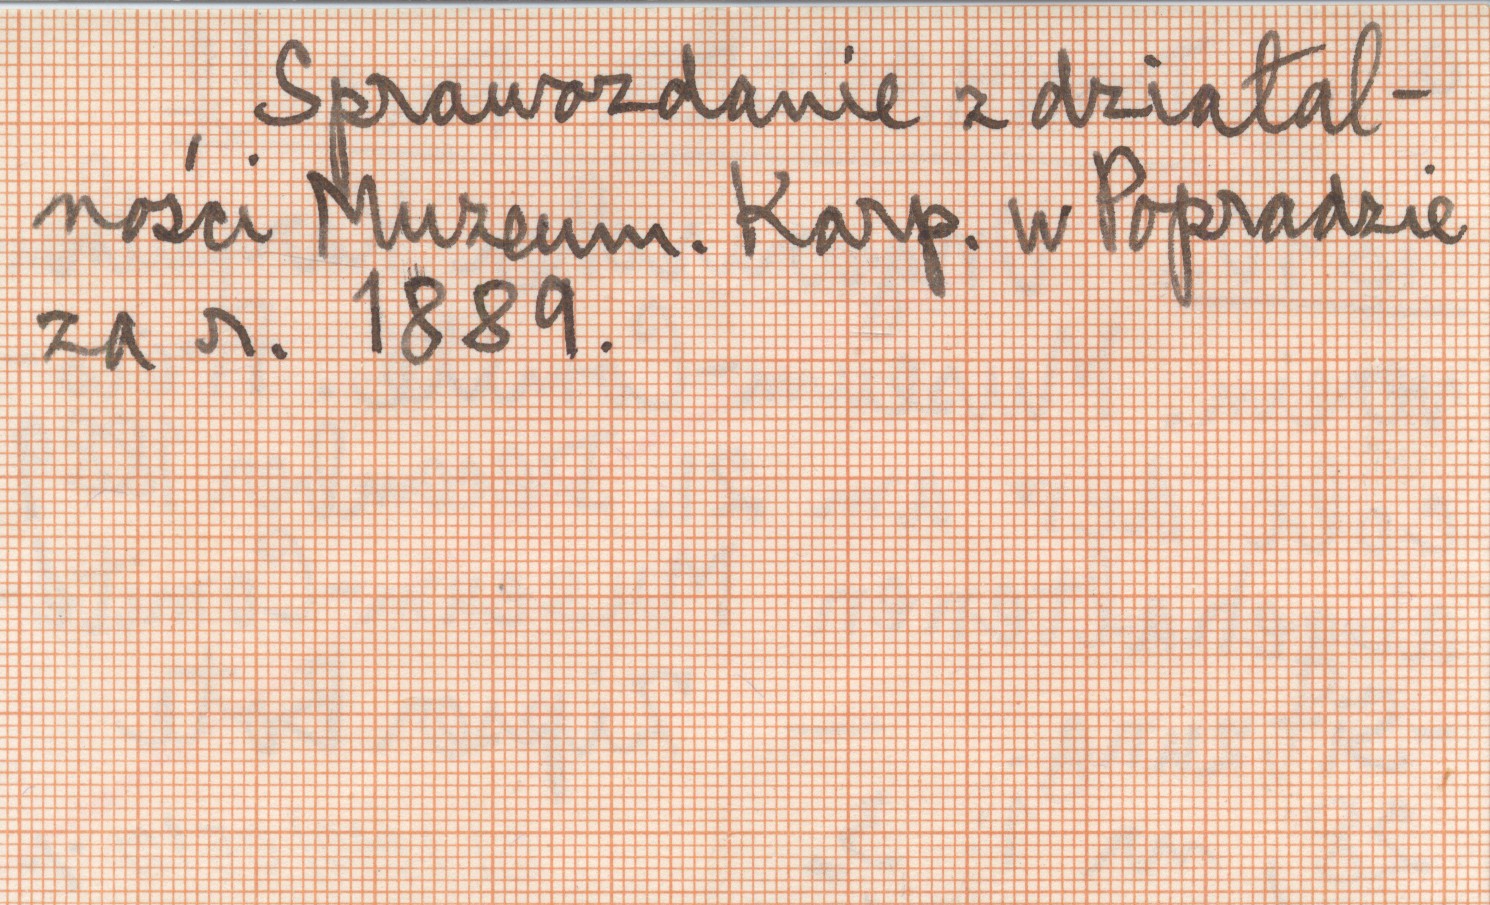 Sprawozdanie z dział-
ności Muzeum. Karp. w Popradzie
za r. 1889.